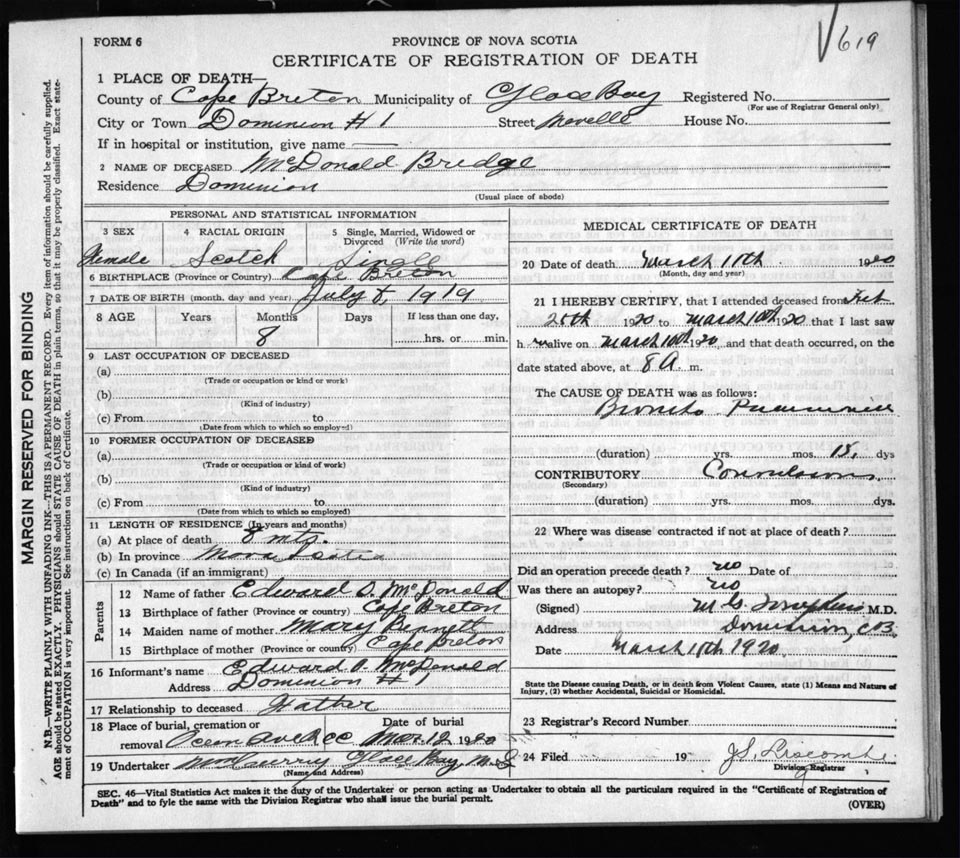 619
FORM 6
PROVINCE OF NOVA SCOTIA
CERTIFICATE OF REGISTRATION OF DEATH
MARGIN RESERVED FOR BINDING
N.B.—WRITE PLAINLY WITH UNFADING INK—THIS IS A PERMANENT RECORD. Every item of information should be carefully supplied.
AGE should be stated EXACTLY. PHYSICIANS should STATE CAUSE OF DEATH in plain terms, so that it may be properly classified. Exact state-
ment of OCCUPATION is very important. See instructions on back of Certificate.
1 PLACE OF DEATH—
County of Cape Breton Municipality of Glace Bay Registered No.
(For use of Registrar General only)
City or Town Dominion # 1 Street House No.
If in hospital or institution, give name
2 NAME OF DECEASED McDonald Bridge
Residence Dominion
(Usual place of abode)
PERSONAL AND STATISTICAL INFORMATION
3 SEX 4 RACIAL ORIGIN 5 Single, Married, Widowed or Divorced (Write the word)
Female Scotch Single
6 BIRTHPLACE (Province or Country) Cape Breton
7 DATE OF BIRTH (month, day and year) July 8, 1919
8 AGE Years Months Days If less than one day,
8 hrs. or min.
9 LAST OCCUPATION OF DECEASED
(a)
(Trade or occupation or kind or work)
(b)
(Kind of industry)
(c) From to
(Date from which to so employed)
10 FORMER OCCUPATION OF DECEASED
(a)
(Trade or occupation or kind of work)
(b)
(Kind of industry)
(c) From to
(Date from which to which so employed)
11 LENGTH OF RESIDENCE (In years and months)
(a) At place of death 8 mts.
(b) In province Nova Scotia
(c) In Canada (if an immigrant)
Parents
12 Name of father Edward D. McDonald
13 Birthplace of father (Province or country) Cape Breton
14 Maiden name of mother Mary Bennett
15 Birthplace of mother (Province or country) Cape Breton
16 Informant's name Edward D. McDonald
Address Dominion # 1
17 Relationship to deceased Father
18 Place of burial, cremation or removal Date of burial
Mar. 12 1920
19 Undertaker Glace Bay, N.S
(Name and Address)
MEDICAL CERTIFICATE OF DEATH
20 Date of death March 11th 1920
(Month, day and year)
21 I HEREBY CERTIFY, that I attended deceased from Feb
25th 1920 to March 10th 1920 that I last saw
h alive on March 10th 1920, and that death occurred, on the
date stated above, at 8 A. m.
The CAUSE OF DEATH was as follows:
Broncho Pneumonia
(duration) yrs. mos. 15, dys
CONTRIBUTORY Convulsions
(Secondary)
(duration) yrs. mos. dys.
22 Where was disease contracted if not at place of death?
Did an operation precede death? no Date of
Was there an autopsy? no
(Signed) M.D.
Address Dominion, C.B.
Date March 1920
State the Disease causing Death, or in death from Violent Causes, state (1) Means and Nature of
Injury, (2) whether Accidental, Suicidal or Homicidal.
23 Registrar's Record Number
24 Filed 19
Division Registrar
SEC. 46—Vital Statistics Act makes it the duty of the Undertaker or person acting as Undertaker to obtain all the particulars required in the "Certificate of Registration of
Death" and to fyle the same with the Division Registrar who shall issue the burial permit.
(OVER)